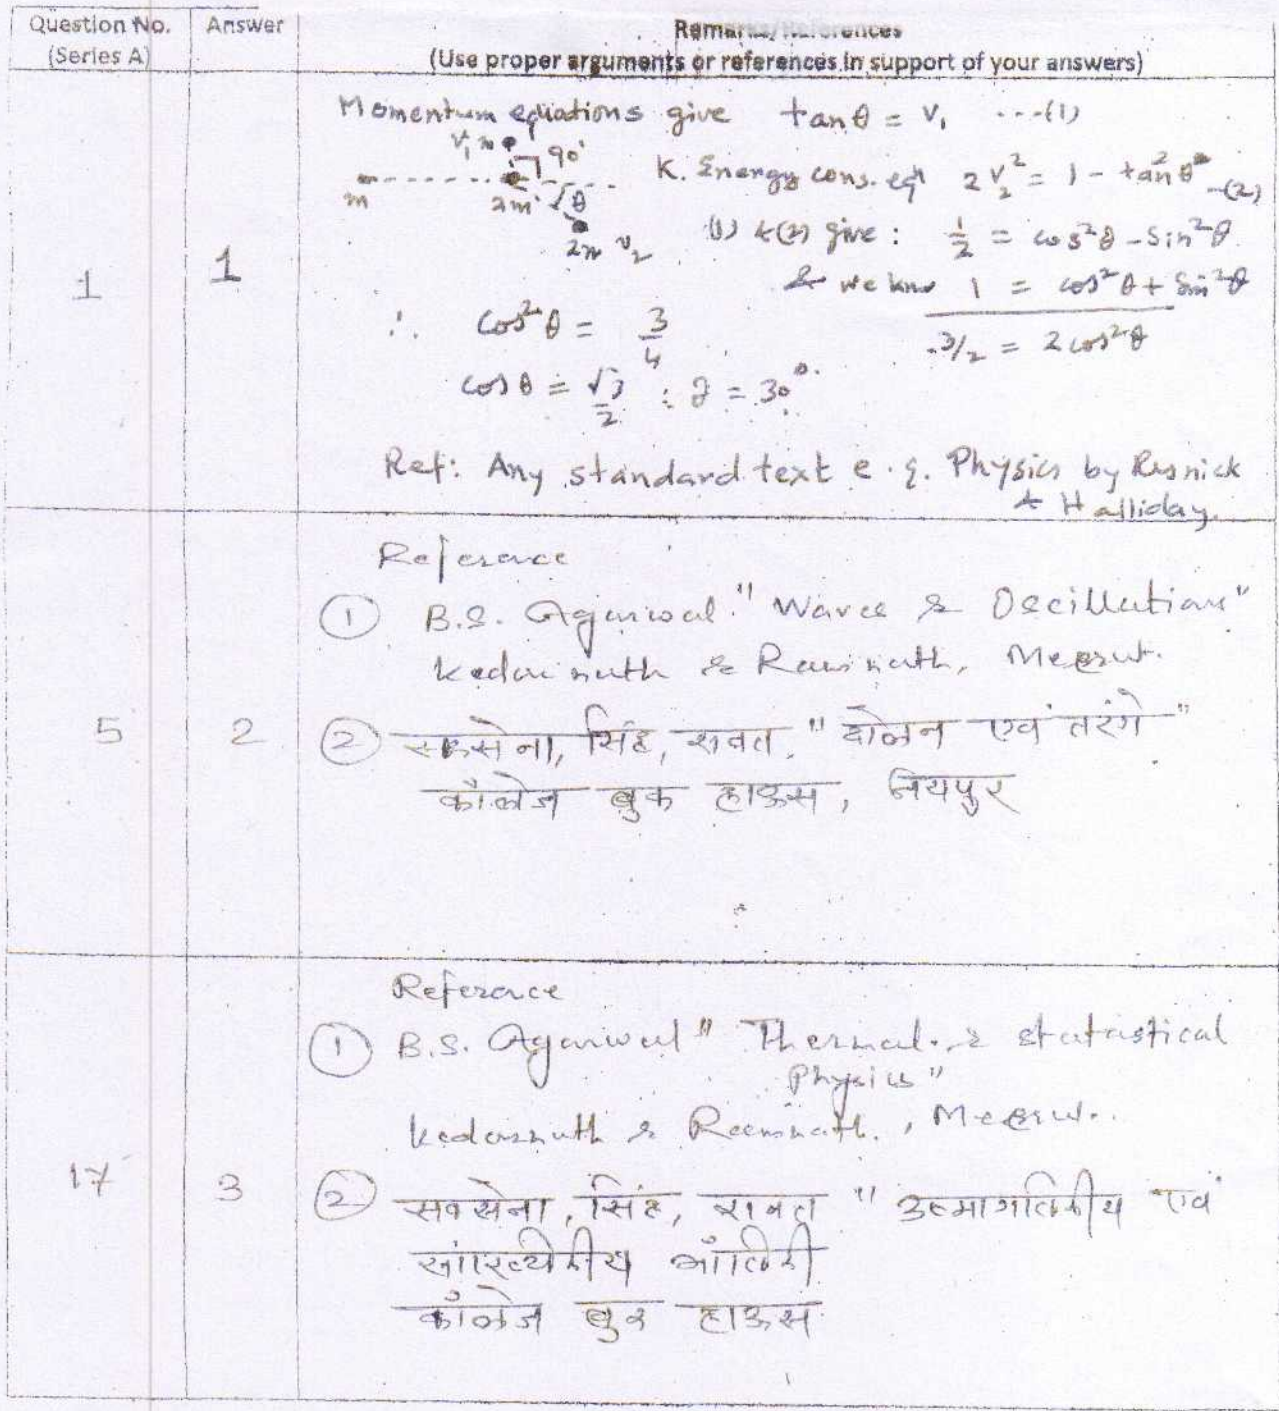 Question No. Answer Remarks/References
(Series A) (Use proper arguments or references in support of your answers)
Momentum equations give tanθ = V₁ ---(1)
V₁ m 90°
K. Energy cons. eqn 2V₂² = 1 - tan²θ -(2)
m 2m θ
2m V₂ (1) & (2) give : 1/2 = cos²θ - Sin²θ
1 1 & we know 1 = cos²θ + Sin²θ
∴ cos²θ = 3/4 3/2 = 2cos²θ
cosθ = √3/2 : θ = 30°
Ref: Any standard text e.g. Physics by Resnick
& Halliday.
Reference
① B.S. Agarwal "Waves & Oscillations"
Kedarnath & Ramnath, Meerut.
5 2 ② सक्सेना, सिंह, रावत, "दोलन एवं तरंगे"
कौलेज बुक हाऊस, जयपुर
Reference
① B.S. Agarwal "Thermal & statastical
Physics"
Kedarnath & Ramnath, Meerut.
17 3 ② सक्सेना, सिंह, रावत " उष्मागतिकीय एवं
सांख्यिकीय भौतिकी
कॉलेज बुक हाऊस